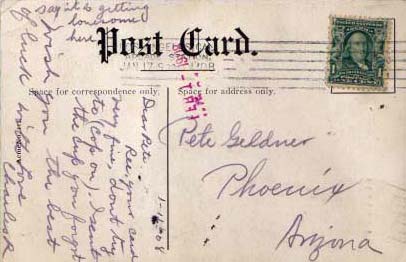 Post Card.
JAN 17
Space for correspondence only.
Space for address only.
1-16-08
Dear Pete
Rec. your card
very fine, don't try
to (cop on). I sent
the cup you forgot
wish you the best
of luck with love
Charles R
say it is getting
lonesome
here
Pete Geldner
Phoenix
Arizona